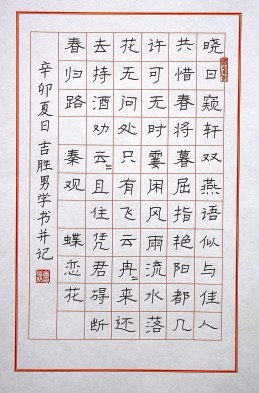 晓日窥轩双燕语似与佳人
共惜春将暮屈指艳阳都几
许可无时霎闲风雨流水落
花无问处只有飞云冉〻来还
去持酒劝云〻且住凭君碍断
春归路 秦观 蝶恋花
辛卯夏日 吉胜男学书并记